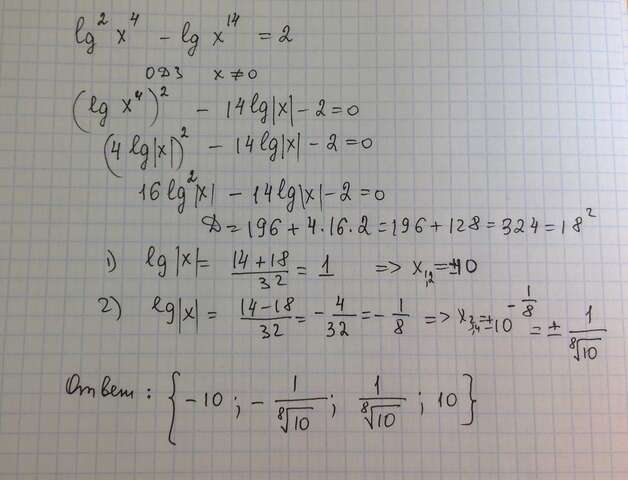 lg² x⁴ − lg x¹⁴ = 2
ОДЗ x ≠ 0
(lg x⁴)² − 14 lg|x| − 2 = 0
(4 lg|x|)² − 14 lg|x| − 2 = 0
16 lg²|x| − 14 lg|x| − 2 = 0
Д = 196 + 4·16·2 = 196 + 128 = 324 = 18²
1) lg|x| = (14+18)/32 = 1 => x₁,₂ = ±10
2) lg|x| = (14−18)/32 = −4/32 = −1/8 => x₃,₄ = ±10^(−1/8) = ± 1/⁸√10
Ответ: {−10; −1/⁸√10; 1/⁸√10; 10}